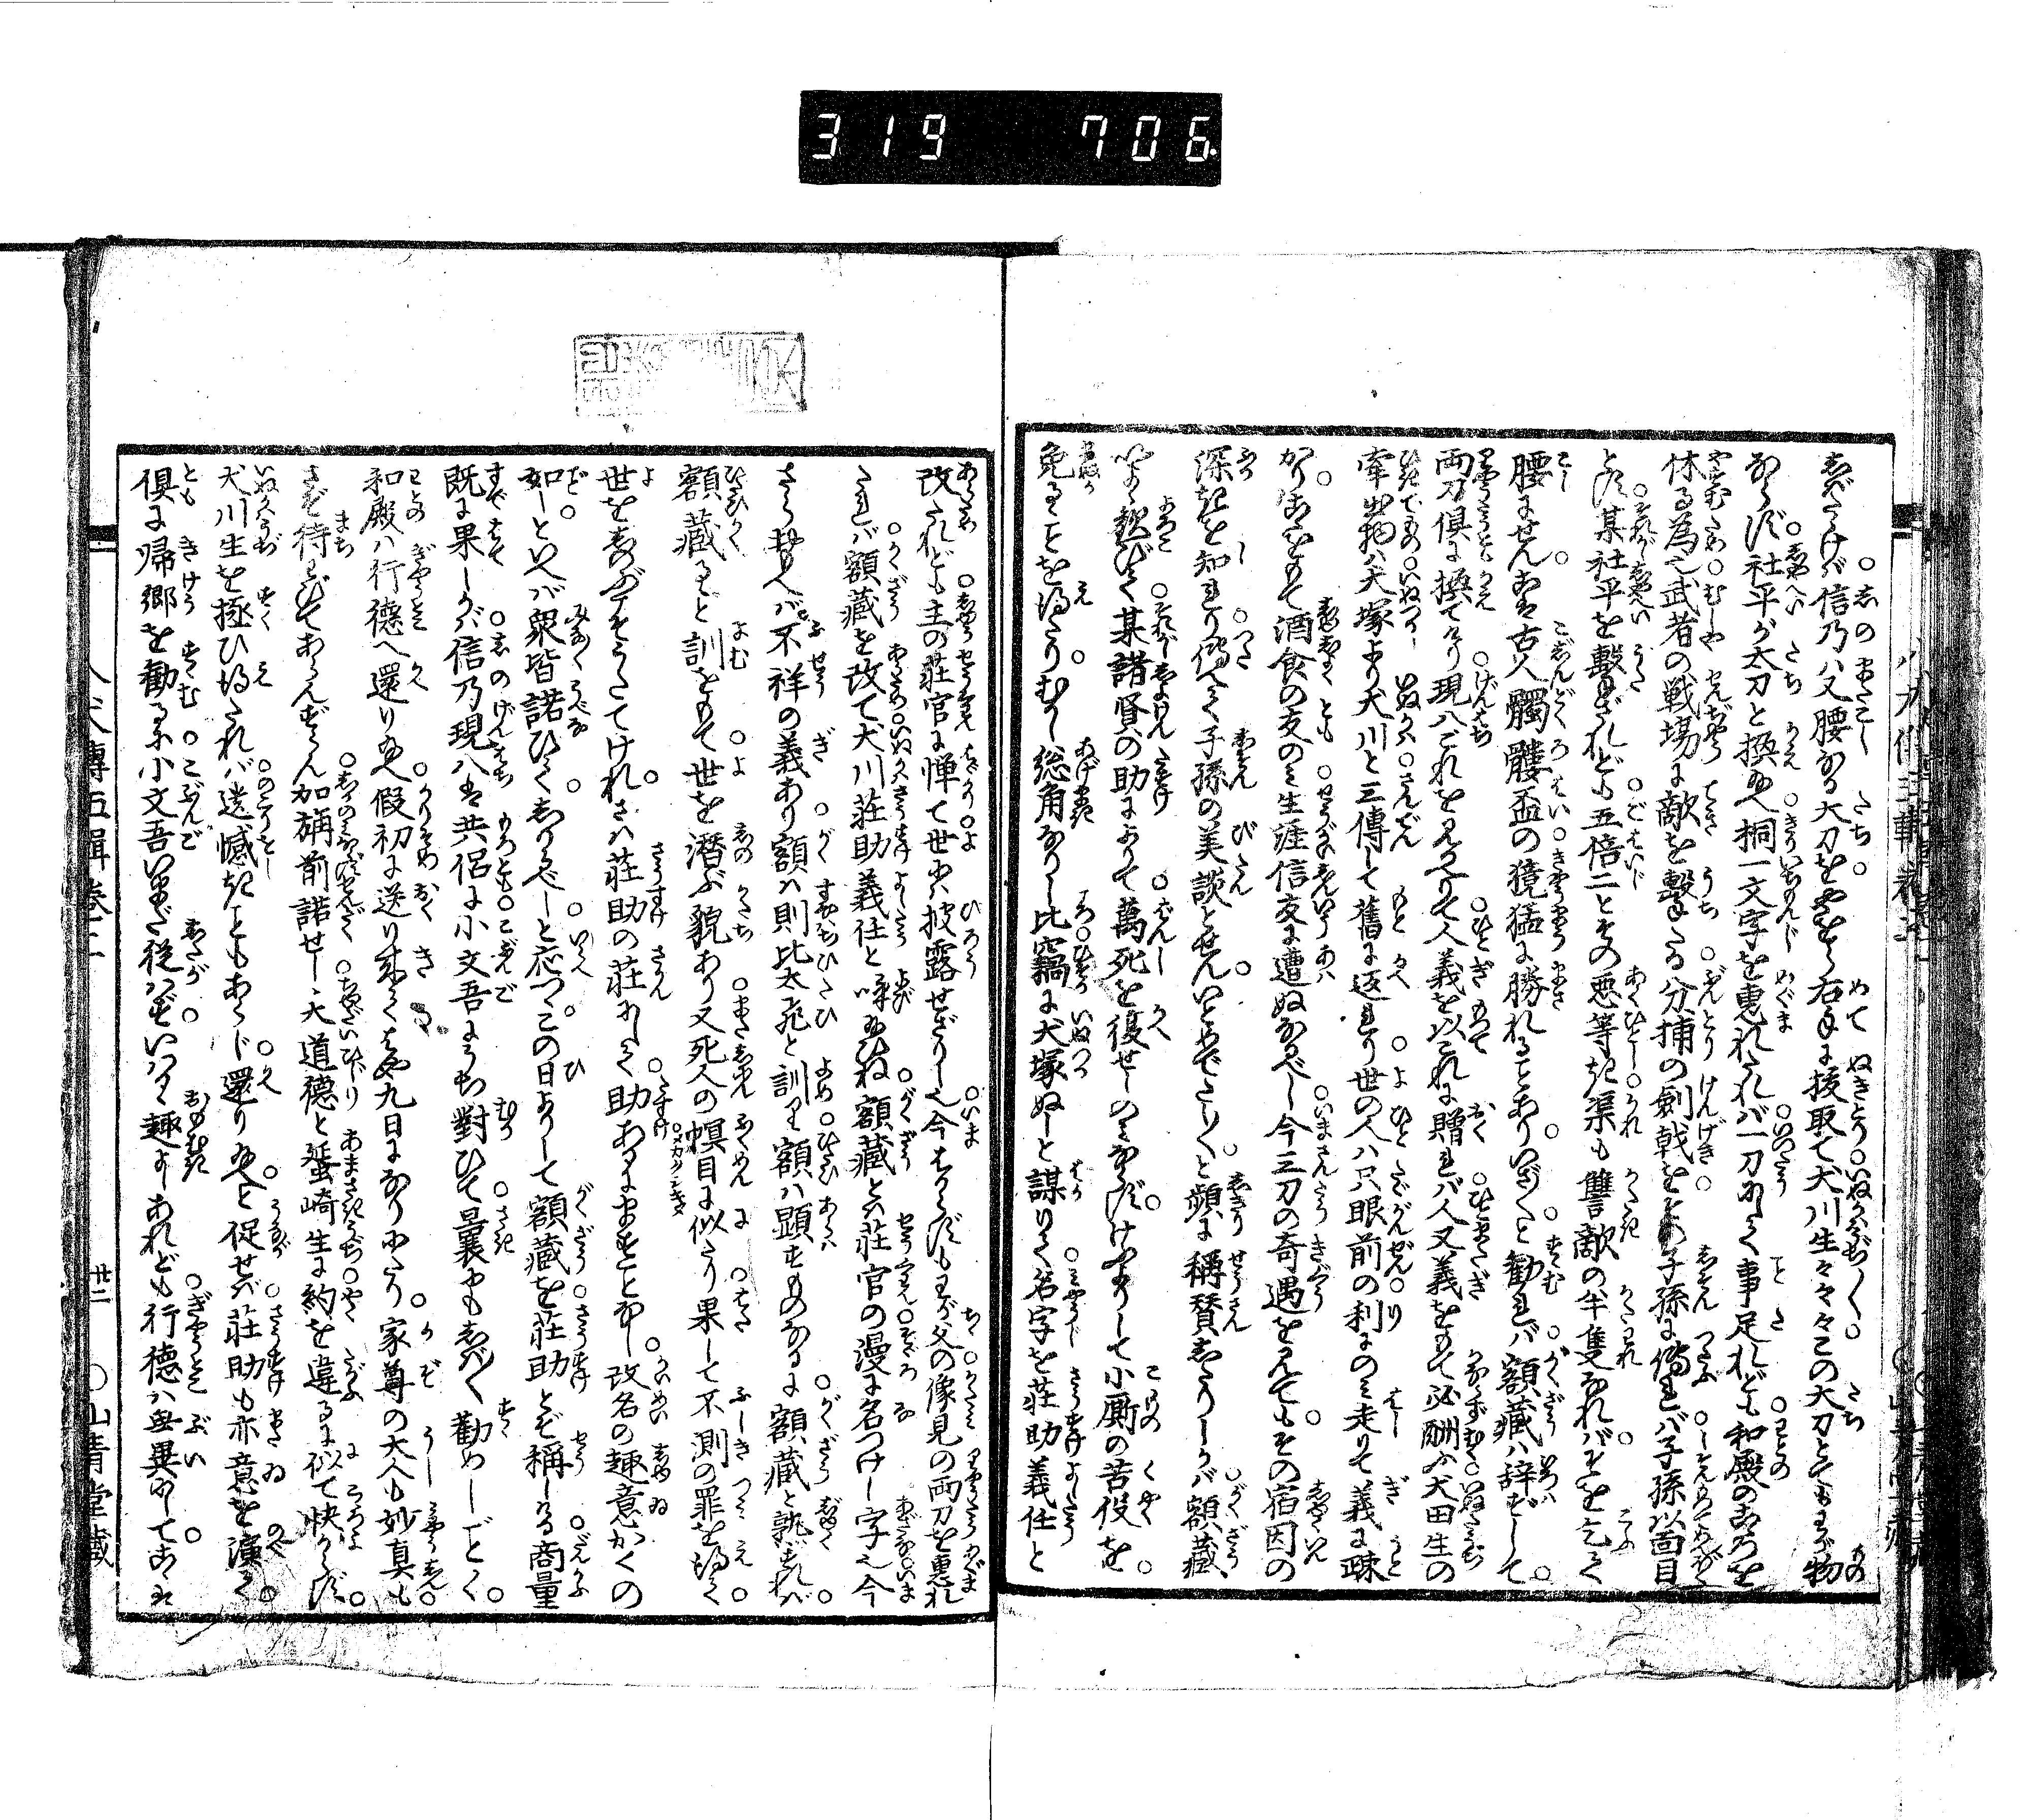 319 706
しかりけれバ信乃ハ又腰なる大刀をやをら右手に抜取て犬川生々々々この大刀とてもわが物
ならず社平が太刀と換給へ桐一文字を惠れたれバ一刀にして事足れども和殿のこゝろを
休る為也武者の戦場に敵を擊たる分捕の劔戟をとめ子孫に傳れバ子孫以面目
とす某社平を擊ざれども五倍二とその悪等き渠も讐敵の半隻なれバそを乞て
腰にせんこは古人髑髏盃の獍猛に勝れることありいざ給へと勸れバ額藏ハ辞ずして
両刀倶に換てけり現八これを見かへりて人義を以これに贈れバ人又義をもて必酬ふ犬田生の
牽出物ハ犬塚より犬川と三傳して舊に返れり世の人ハ只眼前の利にのミ走りて義に疎
かり志をもて酒食の友のミ生涯信友に遭ぬなるべし今三刀の奇遇を見てもその宿因の
深きを知れり傳て子孫の美談とせんいとめでたしと頻に稱賛したりしかバ額藏
いよゝ歓びて某諸賢の助によりて萬死を復せしのミならずけふよりして小廝の苦役を
免るゝことを得たりむかし総角なりし比竊に犬塚ぬしと謀りて名字を莊助義任と
改たれども主の莊官に憚て世にハ披露せざりし也今はからずもわが父の像見の両刀を惠れ
たれバ額藏を改て犬川莊助義任と喚給ひね額藏とハ莊官の漫に名つけし字也今
さら思へバ不祥の義あり額ハ則比太飛と訓り額ハ顕すものなるに額藏と熟すれバ
額藏ると訓をもて世を潜ぶ貌あり又死人の幎目に似たり果して不測の罪を得て
世をしのぶ身となりてけれさハ莊助の莊にして助あるにますことなし改名の趣意かくの
如しといへバ衆皆諾ひてしかるべしと応つゝこの日よりして額藏を莊助とぞ稱しける商量
既に果しかバ信乃現八は共侶に小文吾にうち對ひて曩にもしば〳〵勸めしごとく
和殿ハ行德へ還り給へ假初に送り来てはや九日になりにたり家尊の大人も妙真も
さぞ待わびてあらんずらん加旃前諾せし丶大道德と蜑崎生に約を違るに似て快からず
犬川生を拯ひ得たれバ遺憾きこともあらじ還り給へと促せバ莊助も亦意を演て
倶に帰郷を勸るに小文吾いまだ從ハずいハるゝ趣よしあれども行德ハ無異にしてこゝは
八犬傳五輯卷二
廿二
○山青堂藏